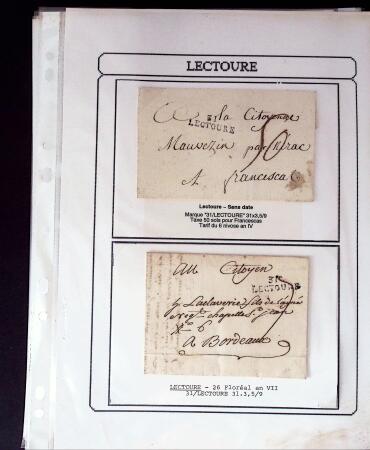 LECTOURE
A la Citoyenne
31
LECTOURE
50
Mauvezin par Nerac
A francescas
Lectoure - Sans date
Marque "31/LECTOURE" 31x3,5/9
Taxe 50 sols pour Francescas
Tarif du 6 nivose an IV
Au Citoyen
31
LECTOURE
Laclaverie fils de
Neg.t chapelle St Jean
N.o 6
A Bordeaux
LECTOURE - 26 Floréal an VII
31/LECTOURE 31.3,5/9